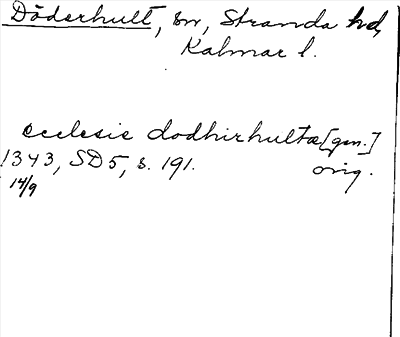 Döderhult, sn, Stranda hd,
Kalmar l.
ecclesie dodhirhulta [gen.]
1343, SD 5, s. 191. orig.
14/9